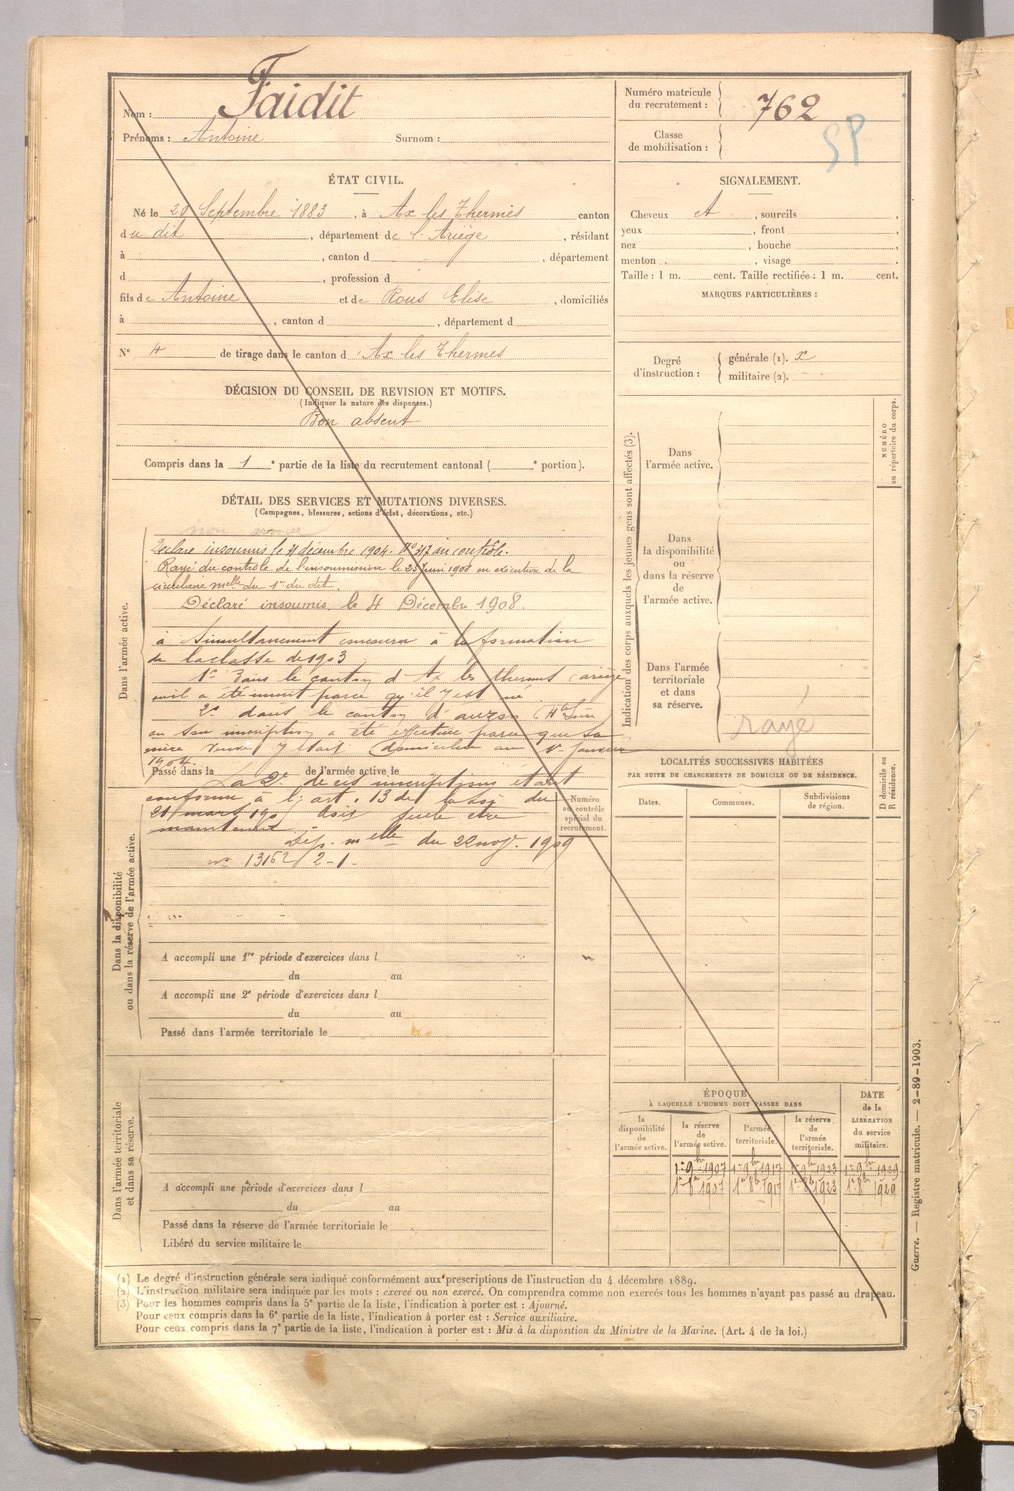 Nom : Faidit
Prénoms : Antoine Surnom :
ÉTAT CIVIL.
Né le 29 Septembre 1883, à Ax les Thermes canton
du dit, département de l'Ariège, résidant
à , canton d , département
d , profession d
fils de Antoine et de Rous Elise, domiciliés
à , canton d , département d
N° 4 de tirage dans le canton d'Ax les Thermes
DÉCISION DU CONSEIL DE REVISION ET MOTIFS.
(Indiquer la nature des dispenses.)
Bon absent
Compris dans la 1e partie de la liste du recrutement cantonal ( e portion).
DÉTAIL DES SERVICES ET MUTATIONS DIVERSES.
(Campagnes, blessures, actions d'éclat, décorations, etc.)
Dans l'armée active.
Déclaré insoumis le 4 décembre 1904. N° 317 au contrôle.
Rayé du contrôle de l'insoumission le 25 juin 1908 en exécution de la
circulaire melle du 1er du dit.
Déclaré insoumis le 4 Décembre 1908.
à Simultanement concouru à la formation
de la classe de 1903
1° Dans le canton d'Ax les thermes (ariège
ouil a été inscrit parce qu'il y est né
2° dans le canton d'auzon (Hte Loire
ou son inscription a été effectuée parce que sa
mère veuve y était domiciliée au 1er Janvier
1904.
Passé dans la de l'armée active le
La 2e de ces inscriptions étant
conforme à l'art. 13 de la Loi du
21 mars 190 doit seule etre
maintenue.
Dép. melle du 22 nov. 1909
n° 13162/2-1.
Numéro
au contrôle
spécial du
recrutement.
Dans la disponibilité
ou dans la réserve de l'armée active.
A accompli une 1re période d'exercices dans l
du au
A accompli une 2e période d'exercices dans l
du au
Passé dans l'armée territoriale le
Dans l'armée territoriale
et dans sa réserve.
A accompli une période d'exercices dans l
du au
Passé dans la réserve de l'armée territoriale le
Libéré du service militaire le
Numéro matricule
du recrutement : 762
Classe
de mobilisation :
SP
SIGNALEMENT.
Cheveux , sourcils ,
yeux , front ,
nez , bouche ,
menton , visage
Taille : 1 m. cent. Taille rectifiée : 1 m. cent.
MARQUES PARTICULIÈRES :
Degré
d'instruction :
générale (1). x
militaire (2).
Indication des corps auxquels les jeunes gens sont affectés (3).
NUMÉRO
au répertoire du corps.
Dans
l'armée active.
Dans
la disponibilité
ou
dans la réserve
de
l'armée active.
Dans l'armée
territoriale
et dans
sa réserve.
rayé
LOCALITÉS SUCCESSIVES HABITÉES
PAR SUITE DE CHANGEMENTS DE DOMICILE OU DE RÉSIDENCE.
D domicile ou
R résidence.
Dates. Communes. Subdivisions
de région.
ÉPOQUE
À LAQUELLE L'HOMME DOIT PASSER DANS
DATE
de la
LIBÉRATION
du service
militaire.
la
disponibilité
de
l'armée active.
la réserve
de
l'armée active.
l'armée
territoriale.
la réserve
de
l'armée
territoriale.
1er 9b 1907 1er 9b 1917 1er 9b 1923 1er 9b 1929
1er 8b 1907 1er 8b 1917 1er 8b 1923 1er 8b 1929
Guerre. — Registre matricule. — 2-89-1903.
(1) Le degré d'instruction générale sera indiqué conformément aux prescriptions de l'instruction du 4 décembre 1889.
(2) L'instruction militaire sera indiquée par les mots : exercé ou non exercé. On comprendra comme non exercés tous les hommes n'ayant pas passé au drapeau.
(3) Pour les hommes compris dans la 5e partie de la liste, l'indication à porter est : Ajourné.
Pour ceux compris dans la 6e partie de la liste, l'indication à porter est : Service auxiliaire.
Pour ceux compris dans la 7e partie de la liste, l'indication à porter est : Mis à la disposition du Ministre de la Marine. (Art. 4 de la loi.)